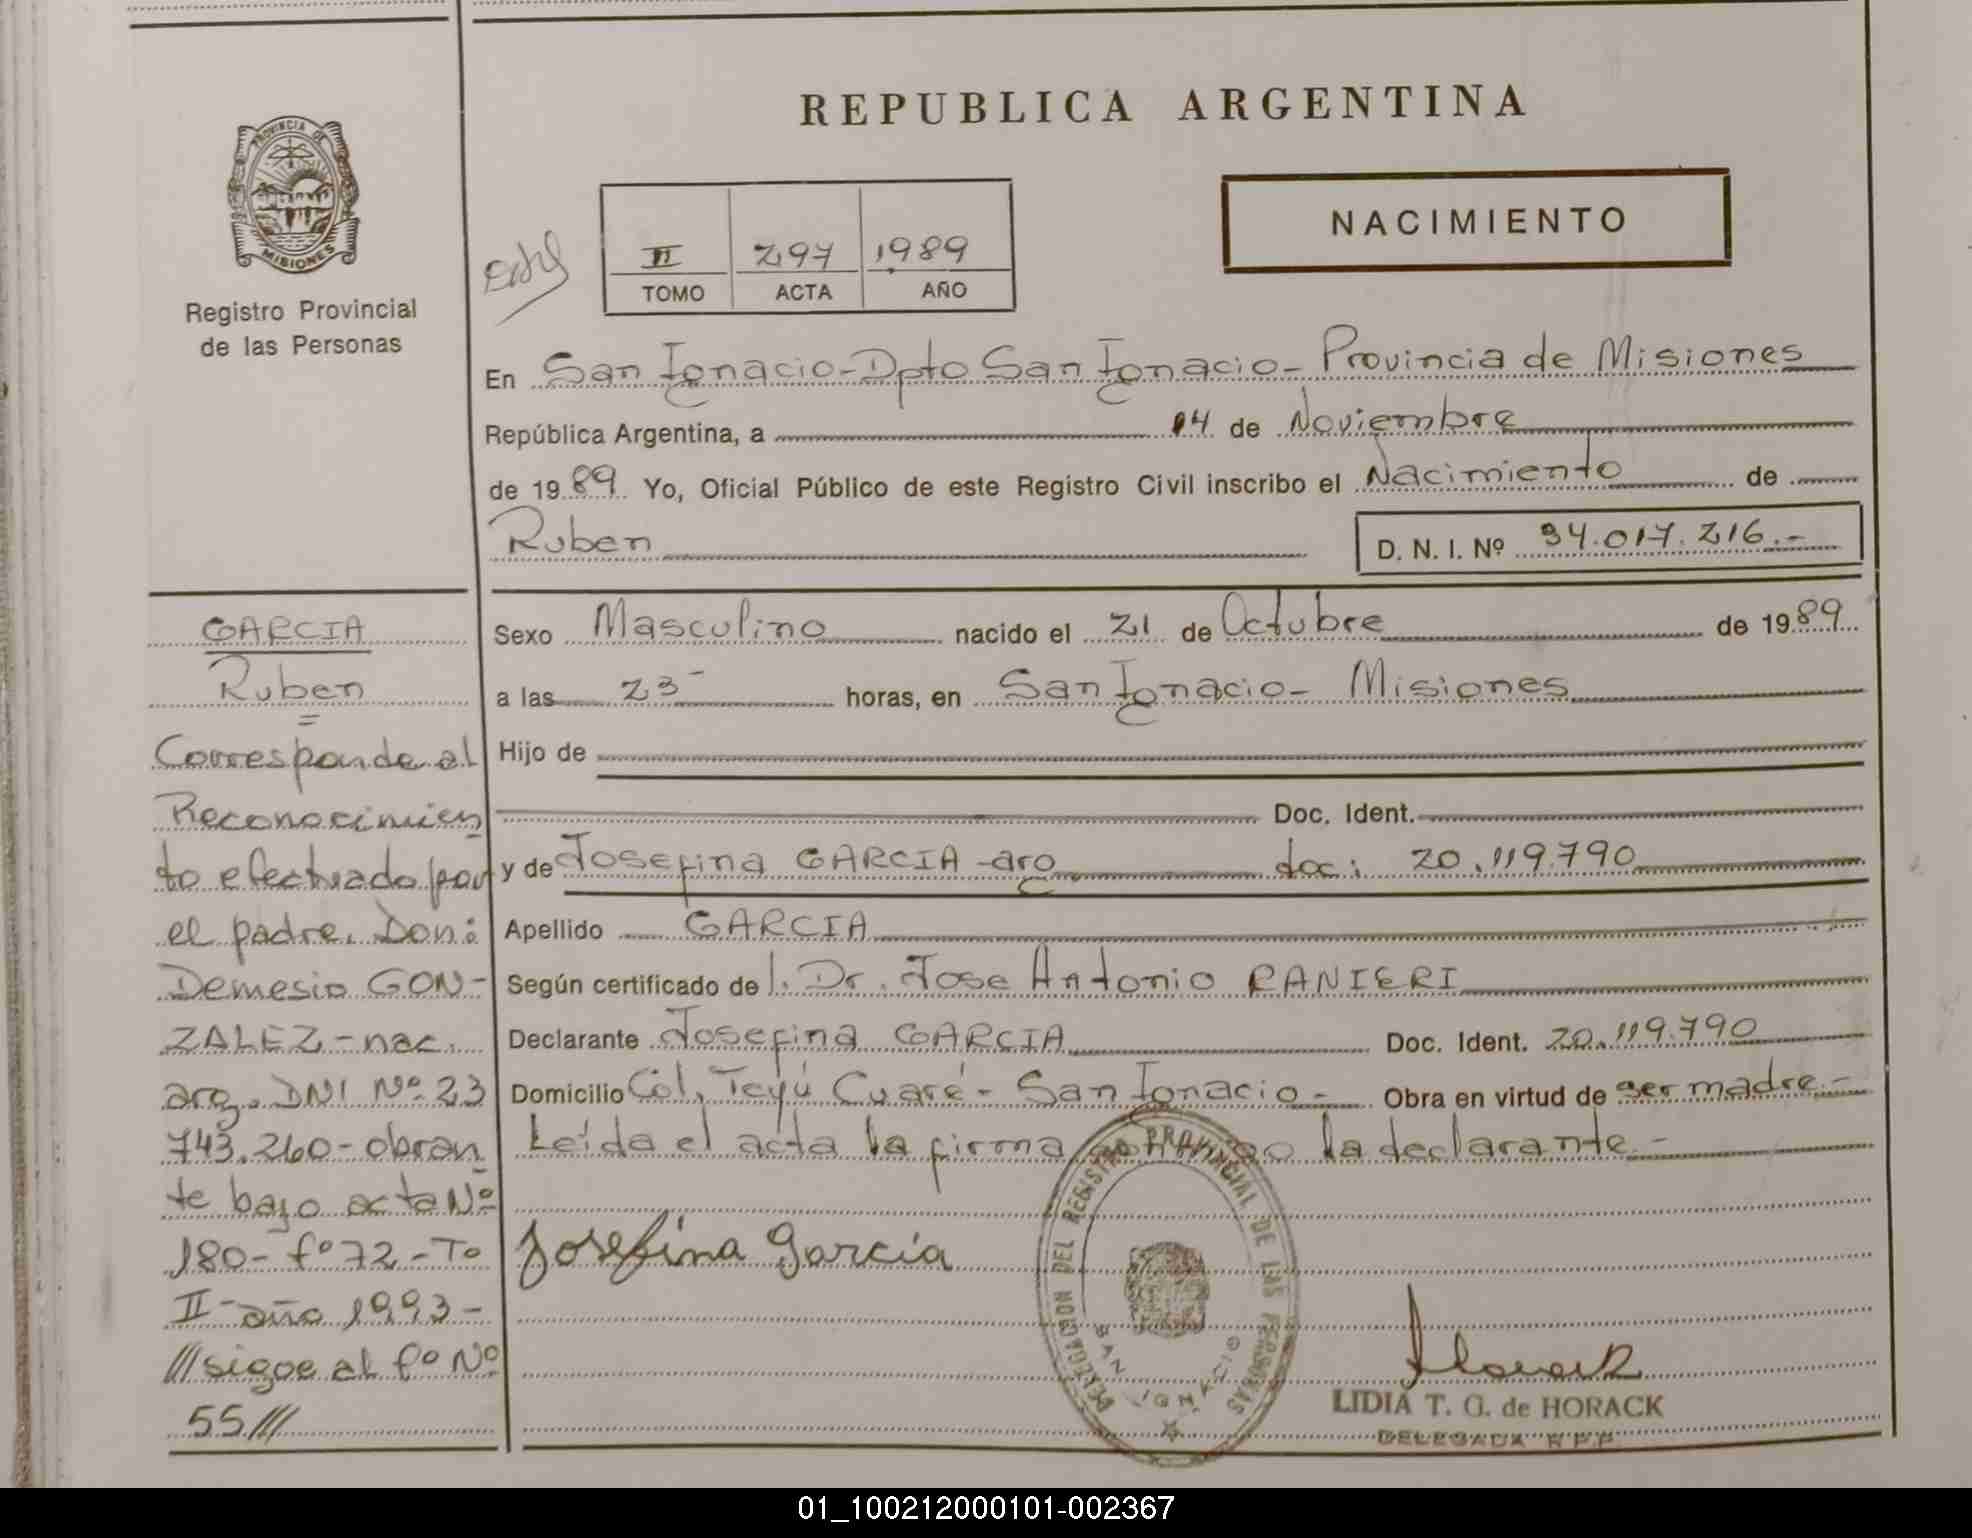 REPUBLICA ARGENTINA
PROVINCIA DE
MISIONES
Registro Provincial
de las Personas
II 297 1989
TOMO ACTA AÑO
NACIMIENTO
En San Ignacio-Dpto San Ignacio- Provincia de Misiones
República Argentina, a 14 de Noviembre
de 1989 Yo, Oficial Público de este Registro Civil inscribo el Nacimiento de
Ruben
D. N. I. Nº 34.017.216.-
Sexo Masculino nacido el 21 de Octubre de 1989
a las 23- horas, en San Ignacio- Misiones
Hijo de
Doc. Ident.
y de Josefina GARCIA -arg. doc: 20.119.790
Apellido GARCIA
Según certificado de l. Dr. Jose Antonio RANIERI
Declarante Josefina GARCIA Doc. Ident. 20.119.790
Domicilio Col. Teyú Cuaré- San Ignacio- Obra en virtud de ser madre.-
Leída el acta la firma la declarante.-
Josefina Garcia
DELEGACION DEL REGISTRO PROVINCIAL DE LAS PERSONAS
SAN IGNACIO
LIDIA T. G. de HORACK
DELEGADA R.P.P.
GARCIA
Ruben
Corresponde al
Reconocimien
to efectuado por
el padre. Don:
Demesio GON-
ZALEZ-nac.
arg. DNI Nº 23
743.260-obran
te bajo acta Nº
180- fº 72-To
II-año 1993-
///sigue al fº Nº
55///
01_100212000101-002367